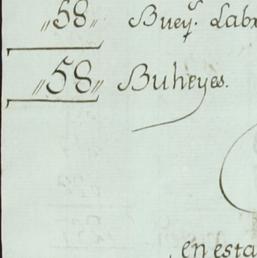 "58 Buey.s Labr
"58" Buheyes.
en esta